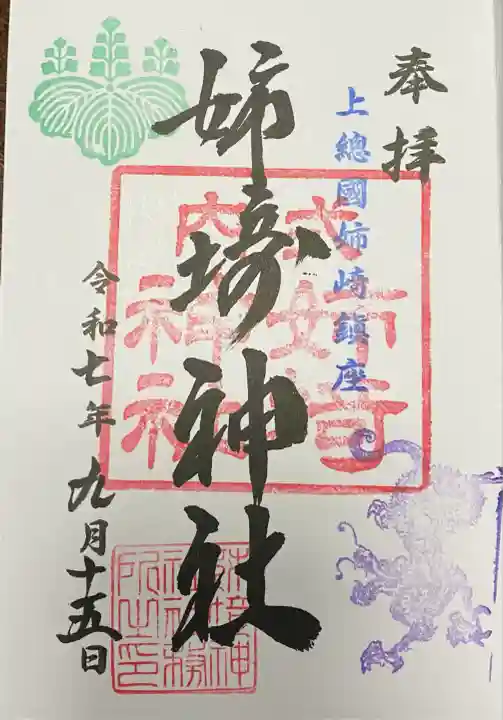 奉拝
上總國姉崎鎮座
姉埼神社
令和七年九月十五日